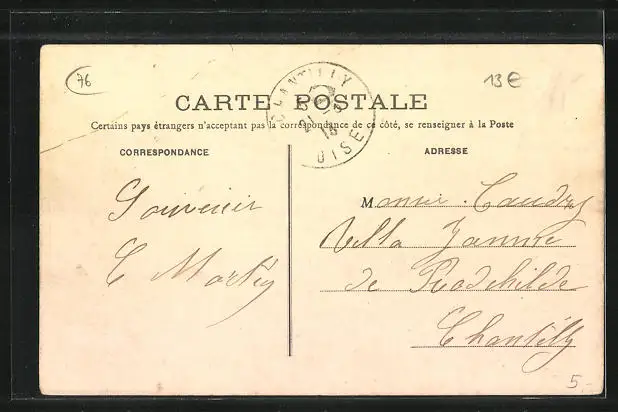 76
13€
CHANTILLY
OISE
CARTE POSTALE
Certains pays étrangers n'acceptant pas la correspondance de ce côté, se renseigner à la Poste
CORRESPONDANCE
ADRESSE
Souvenir
Monsieur
Villa Jannie
de Rodchilde
Chantilly
5-